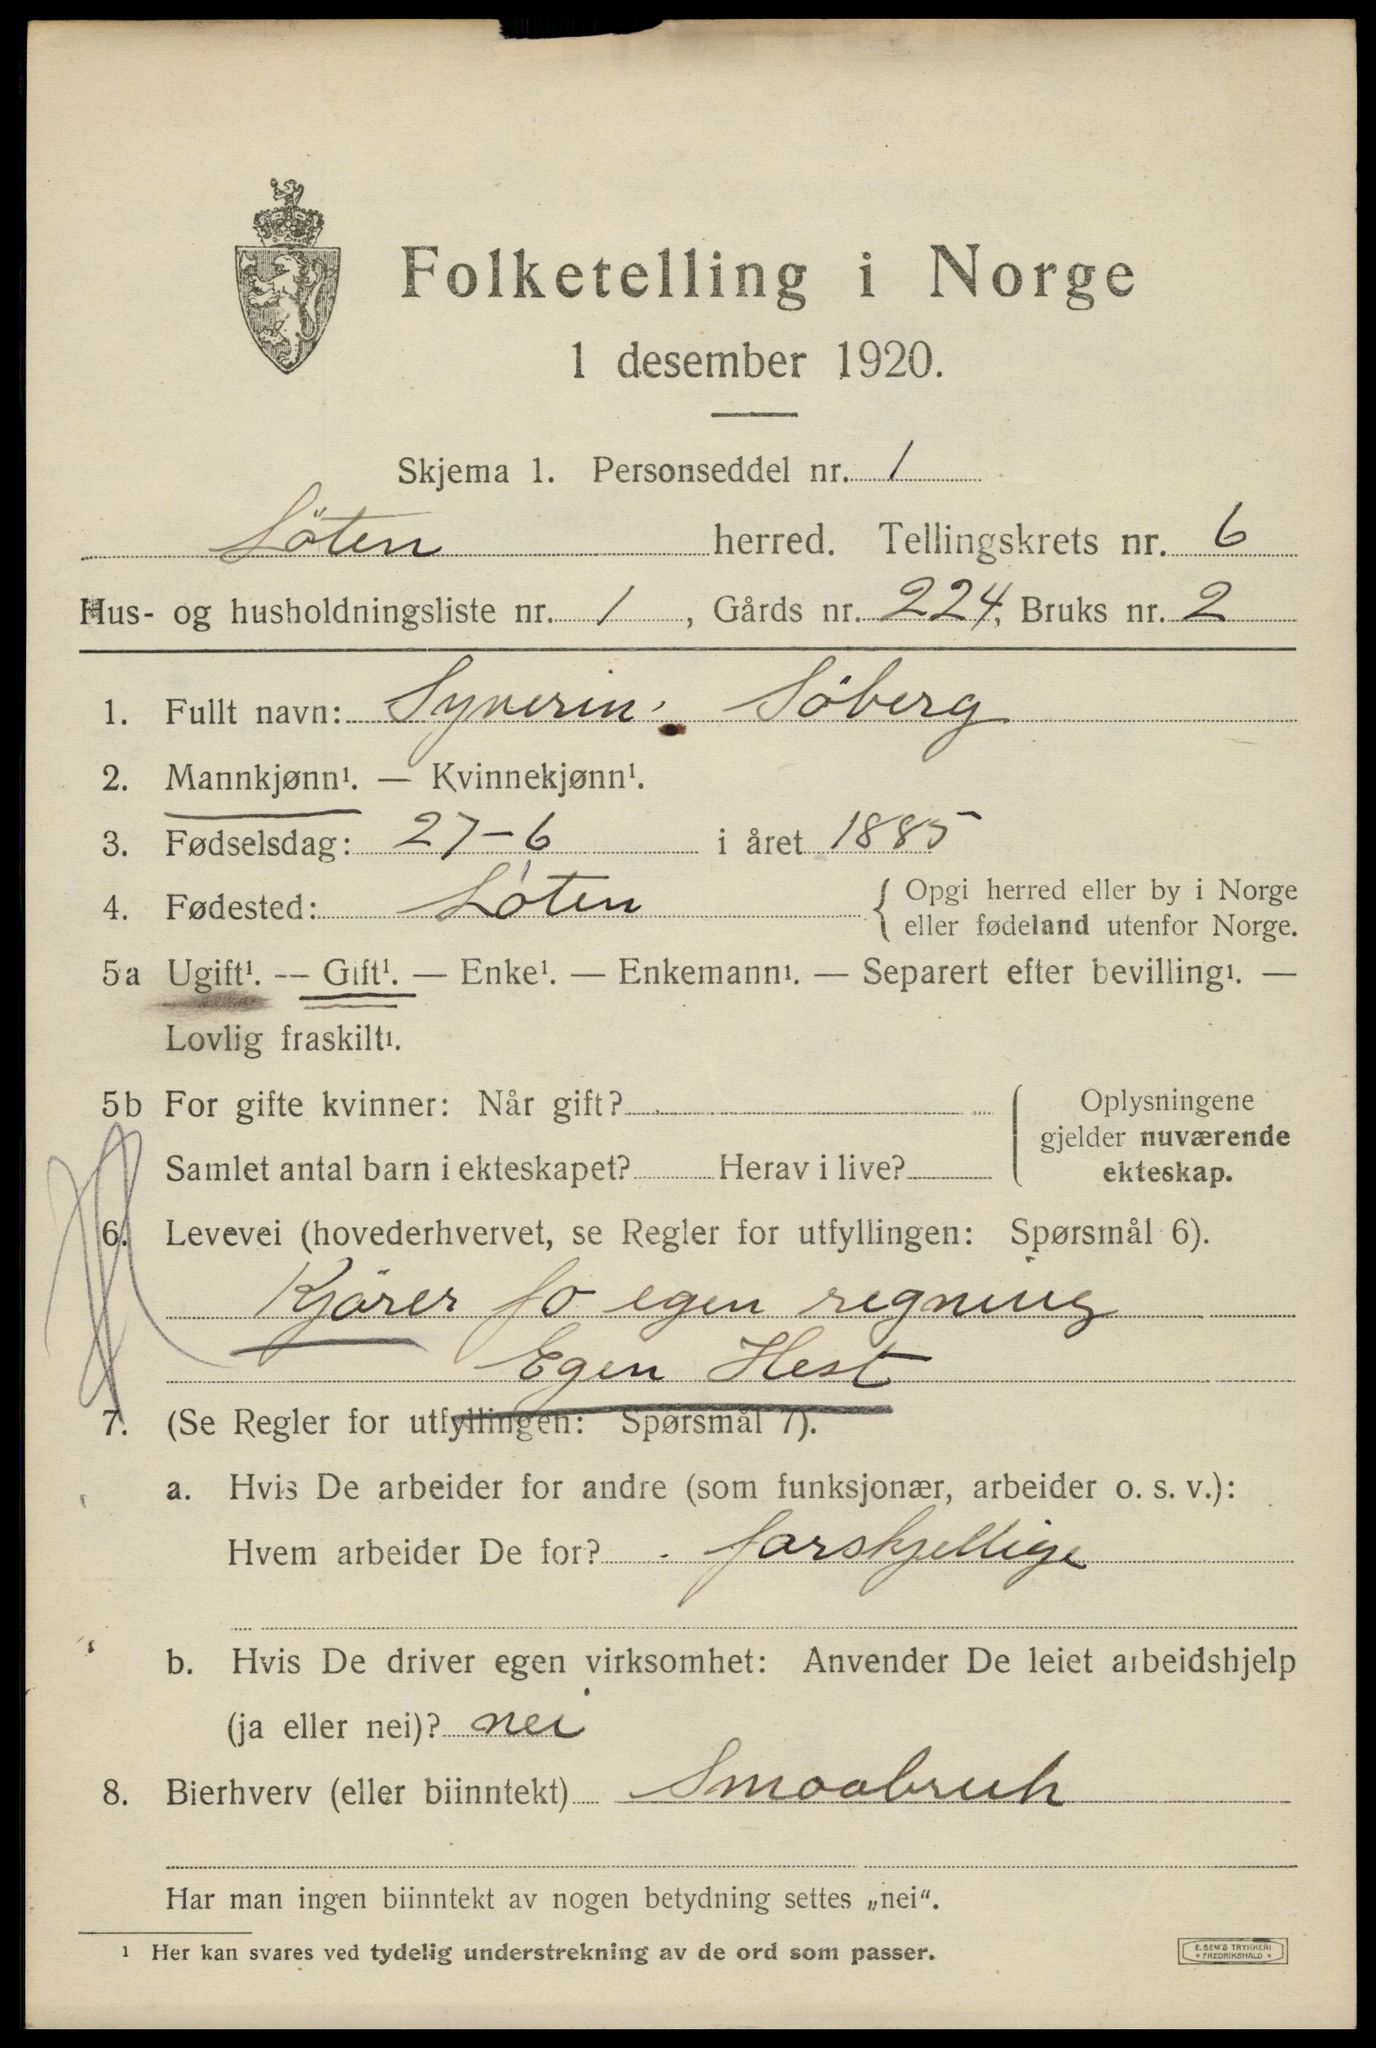 Folketelling i Norge
1 desember 1920.
Skjema 1. Personseddel nr. 1
Löten herred. Tellingskrets nr. 6
Hus- og husholdningsliste nr. 1, Gårds nr. 224, Bruks nr. 2
1. Fullt navn: Syverin Söberg
2. Mannkjønn¹. — Kvinnekjønn¹.
3. Fødselsdag: 27-6 i året 1885
4. Fødested: Löten { Opgi herred eller by i Norge
eller fødeland utenfor Norge.
5a Ugift¹. — Gift¹. — Enke¹. — Enkemann¹. — Separert efter bevilling¹. —
Lovlig fraskilt¹.
5b For gifte kvinner: Når gift? Oplysningene
gjelder nuværende
Samlet antal barn i ekteskapet? Herav i live? ekteskap.
6. Levevei (hovederhvervet, se Regler for utfyllingen: Spørsmål 6).
Kjörer fo egen regning
Egen Hest
7. (Se Regler for utfyllingen: Spørsmål 7).
a. Hvis De arbeider for andre (som funksjonær, arbeider o. s. v.):
Hvem arbeider De for? forskjellige
b. Hvis De driver egen virksomhet: Anvender De leiet arbeidshjelp
(ja eller nei)? nei
8. Bierhverv (eller biinntekt) Smaabruk
Har man ingen biinntekt av nogen betydning settes „nei“.
¹ Her kan svares ved tydelig understrekning av de ord som passer.
E. SEM'S TRYKKERI
* FREDRIKSHALD *